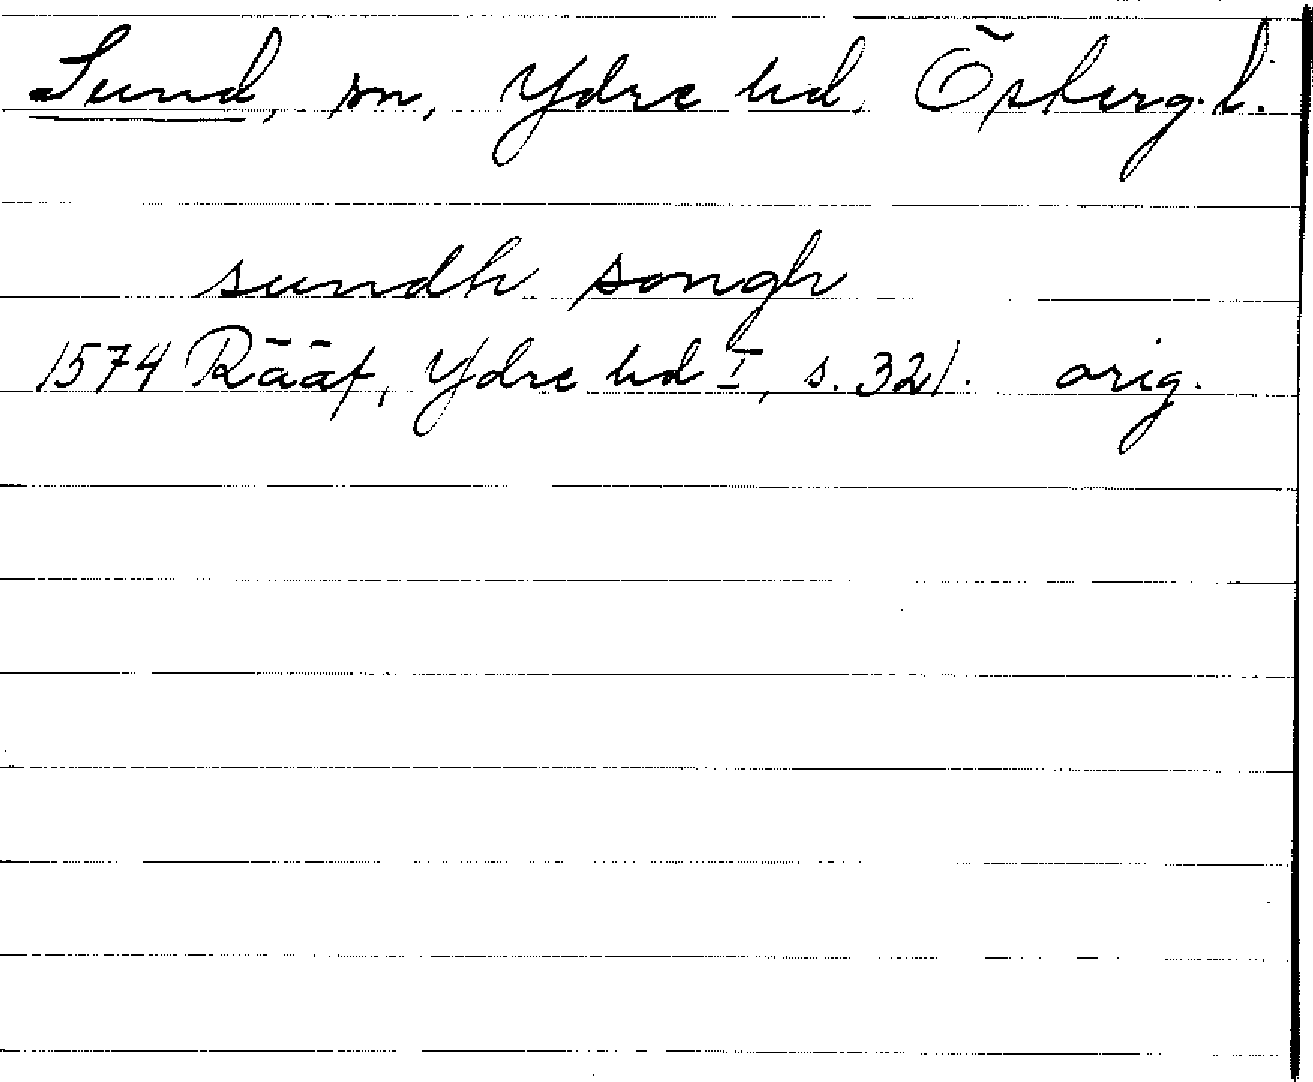 Sund, sn, Ydre hd, Östergl.
sundh songh
1574 Rääf, Ydre hd I, s. 321. orig.